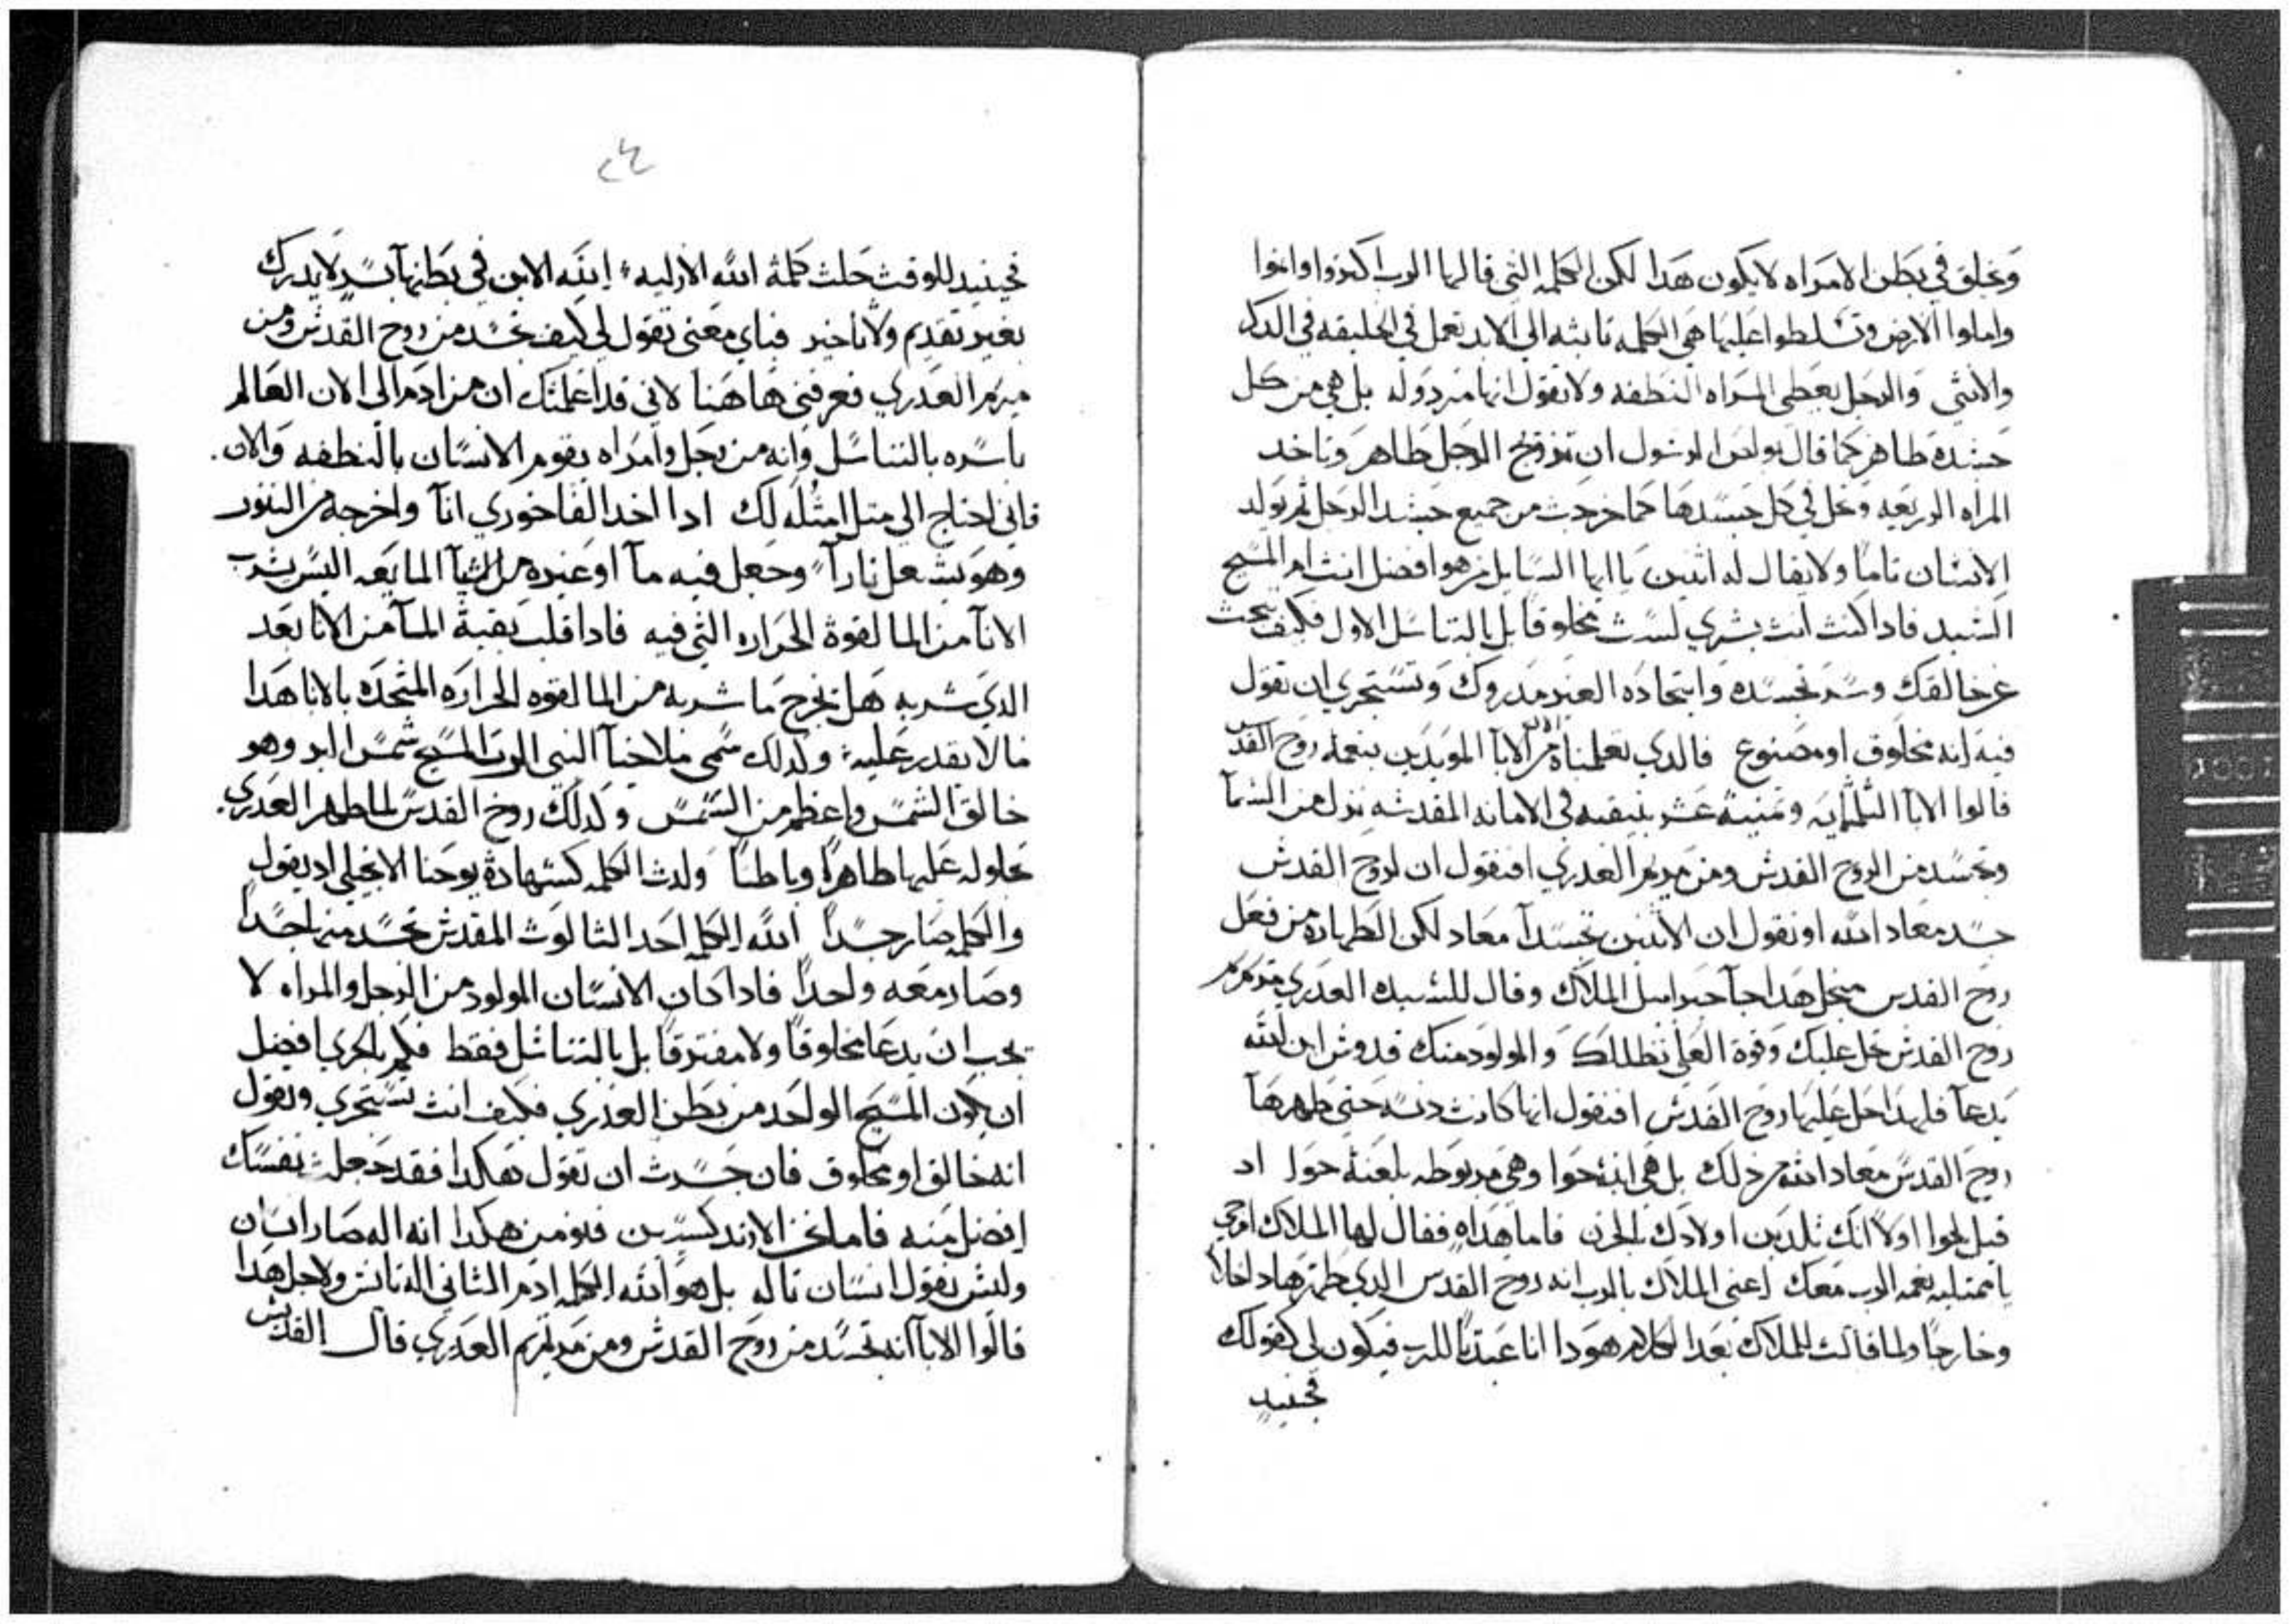 وتخلق في بطن الامراه لا يكون هدا لكن الكلمه التي قالها الرب اكتروا وانموا
واملوا الارض وتسلطوا عليها هي الكلمه تابته الي الابد تعمل في الخليقه في الدكر
والانثي والرجل يعطي المراه النطفه ولا تقول انها مردوله بل هي من كل
جسده طاهر كما قال بولس الرسول ان تزوج الرجل طاهر وتاخد
المراه الزريعه وتحل في كل جسدها كما خرجت من جميع جسد الرجل ثم يولد
الانسان تاما ولا يقال له اتنين يا ايها السايل من هو افضل انت ام المسيح
السيد فادا كنت انت بشري لست مخلوقا بل بالتناسل الاول فكيف تبحث
عن خالقك وسر تجسده واتحاده الغير مدروك وتستجري ان تقول
فيه انه مخلوق او مصنوع فالدي تعلمناه من الابا المويدين بنعمة روح القدس
قالوا الابا التلتمايه وتمنية عشر بنيقيه في الامانه المقدسه نزل من السما
وتجسد من الروح القدس ومن مريم العدري افنقول ان لروح القدس
جسد معاد الله او نقول ان الاتنين تجسدا معاد لكن الطهاره من فعل
روح القدس من اجل هدا جا جبراييل الملاك وقال للسيده العدري مرتمريم
روح القدس تحل عليك وقوة العلي تظللك والمولود منك قدوس ابن الله
يدعا فلهدا حل عليها روح القدس افنقول انها كانت دنسه حتي طهرها
روح القدس معاد الله من دلك بل هي ابنة حوا وهي مربوطه بلعنة حوا اد
قيل لحوا اولا انك تلدين اولادك بالحزن فاما هداه فقال لها الملاك افرحي
يا ممتليه نعمه الرب معك اعني الملاك بالرب انه روح القدس الدي طهرها داخلا
وخارجا ولما قالت للملاك بعد الكلام هودا انا عبدتا للرب فيكون لي كقولك
فحينيد
٢٤
فحينيد للوقت حلت كلمة الله الازليه ابنه الابن في بطنها بسر لا يدرك
بغير تقديم ولا تاخير فباي معني تقول لي كيف تجسد من روح القدس ومن
مريم العدري فعرفني هاهنا لاني قد اعلمتك ان من ادم الي الان العالم
باسره بالتناسل وانه من رجل وامراه يقوم الانسان بالنطفه والان
فاني احتاج الي متل امثله لك ادا اخد الفاخوري انا واخرجه من التنور
وهو يشعل نارا وجعل فيه ما او غيره من الاشيا المايعه اليس يشرب
الانا من الما لقوة الحراره التي فيه فادا قلب بقية الما من الانا بعد
الدي شربه هل يخرج ما شربه من الما لقوه الحراره المتحده بالانا هدا
ما لا يقدر عليه ولدلك سمي ملاخيا النبي الرب المسيح شمس البر وهو
خالق الشمس واعظم من الشمس وكدلك روح القدس لما طهر العدري
بحلوله عليها طاهرا وباطنا ولدت الكلمه كشهادة يوحنا الانجيلي اد يقول
والكلمه صار جسدا الله الكلمه احد التالوت المقدس تجسد منها جسدا
وصار معه واحدا فادا كان الانسان المولود من الرجل والمراه لا
يجب ان يدعا مخلوقا ولا مفترقا بل بالتناسل فقط فكم بالحري افضل
ان يكون المسيح الواحد من بطن العدري فكيف انت تستجري وتقول
انه خالق او مخلوق فان جسرت ان تقول هكدا فقد جعلت نفسك
افضل منه فاما نحن الارتدكسيين فنومن هكدا انه اله صار انسان
وليس نقول انسان تاله بل هو الله الكلمه ادم الثاني اله تانس ولاجل هدا
قالوا الابا انه تجسد من روح القدس ومن مريم العدري قال القديس